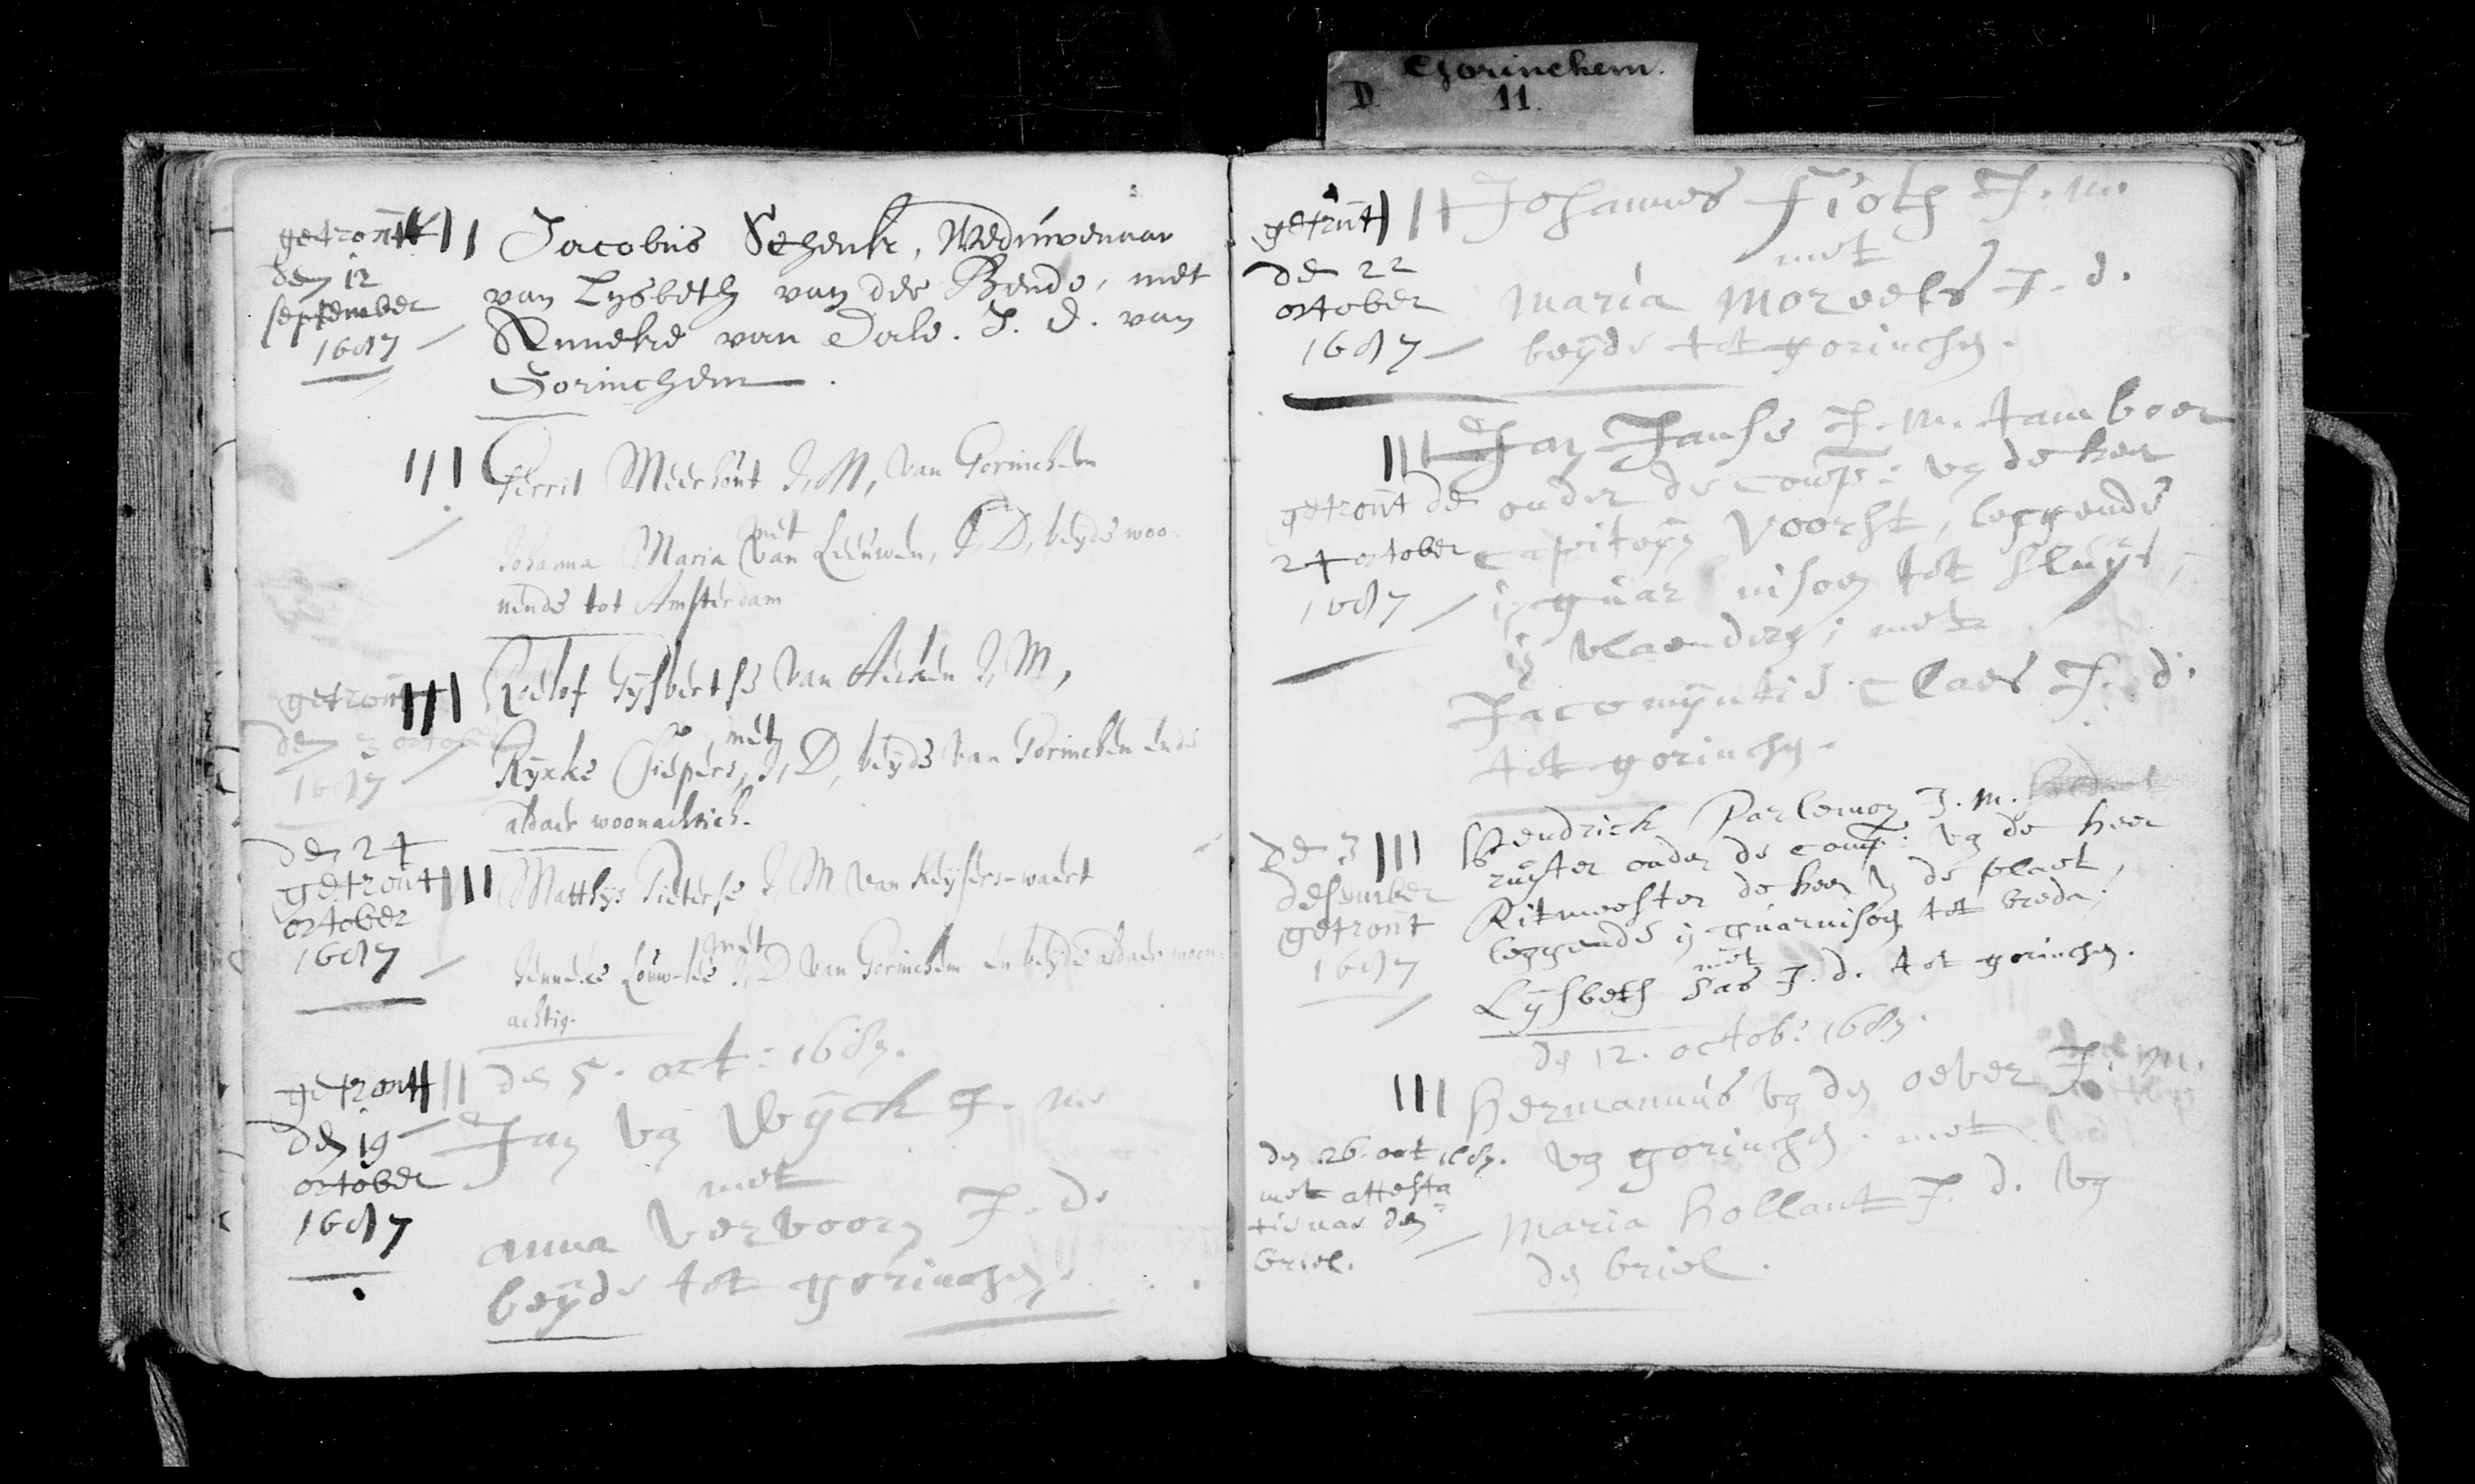 Gorinchem.
D 11.
getrout
den 12
september
1687
Jacobus Schenk, Weduwenaar
van Lysbeth van der Bende, met
Anneke van Dale. J. d. van
Gorinchem.
Gerrit Meerhout J, M, van Gorinchem
met
Johanna Maria van Leeuwen, J, D, beyde woo-
nende tot Amsterdam
getrout
den 3 october
1687
Roelof Gysbertse van Aerken J, M,
met
Ryxke Ciepers, J, D, beyde van Gorinchem ende
aldaer woonachtich.
den 24
getrout
october
1687
Matthys Pieterse J M van Keysers-waert
met
Jenneke Louw-kes J, D van Gorinchem en beyde aldaer woon-
achtig.
getrout
den 19
october
1687
den 5. oct: 1687.
Jan vn Wyck J. m
met
anna vervoorn J. d.
beyde tot gorinchen.
getrut
de 22
october
1687
Johannes Fioth J. m.
met
maria morvels J. d.
beyde tot gorinchen.
getrout de
24 october
1687
Jan Janse J. m. tamboer
onder de comp: vn de heer
capiteyn Voorst, leggende
in guarnisoen tot sluys,
in vlaenderen; met
Jacomyntie Claes J. d.
tot gorinchen.
de 3
desember
getrout
1687
Hendrick Parlemon J. m.
ruyter onder de comp: vn de heer
Ritmeester de heer vn de plaet,
leggende in guarnisoen tot breda;
met
Lysbeth Sas J. d. tot gorinchen.
den 12. octob: 1687.
den 26. oct 1687.
met attesta
tie naer den
briel.
Hermannus vn den oever J. m.
vn gorinchen. met
Maria Hollant J. d. vn
den briel.